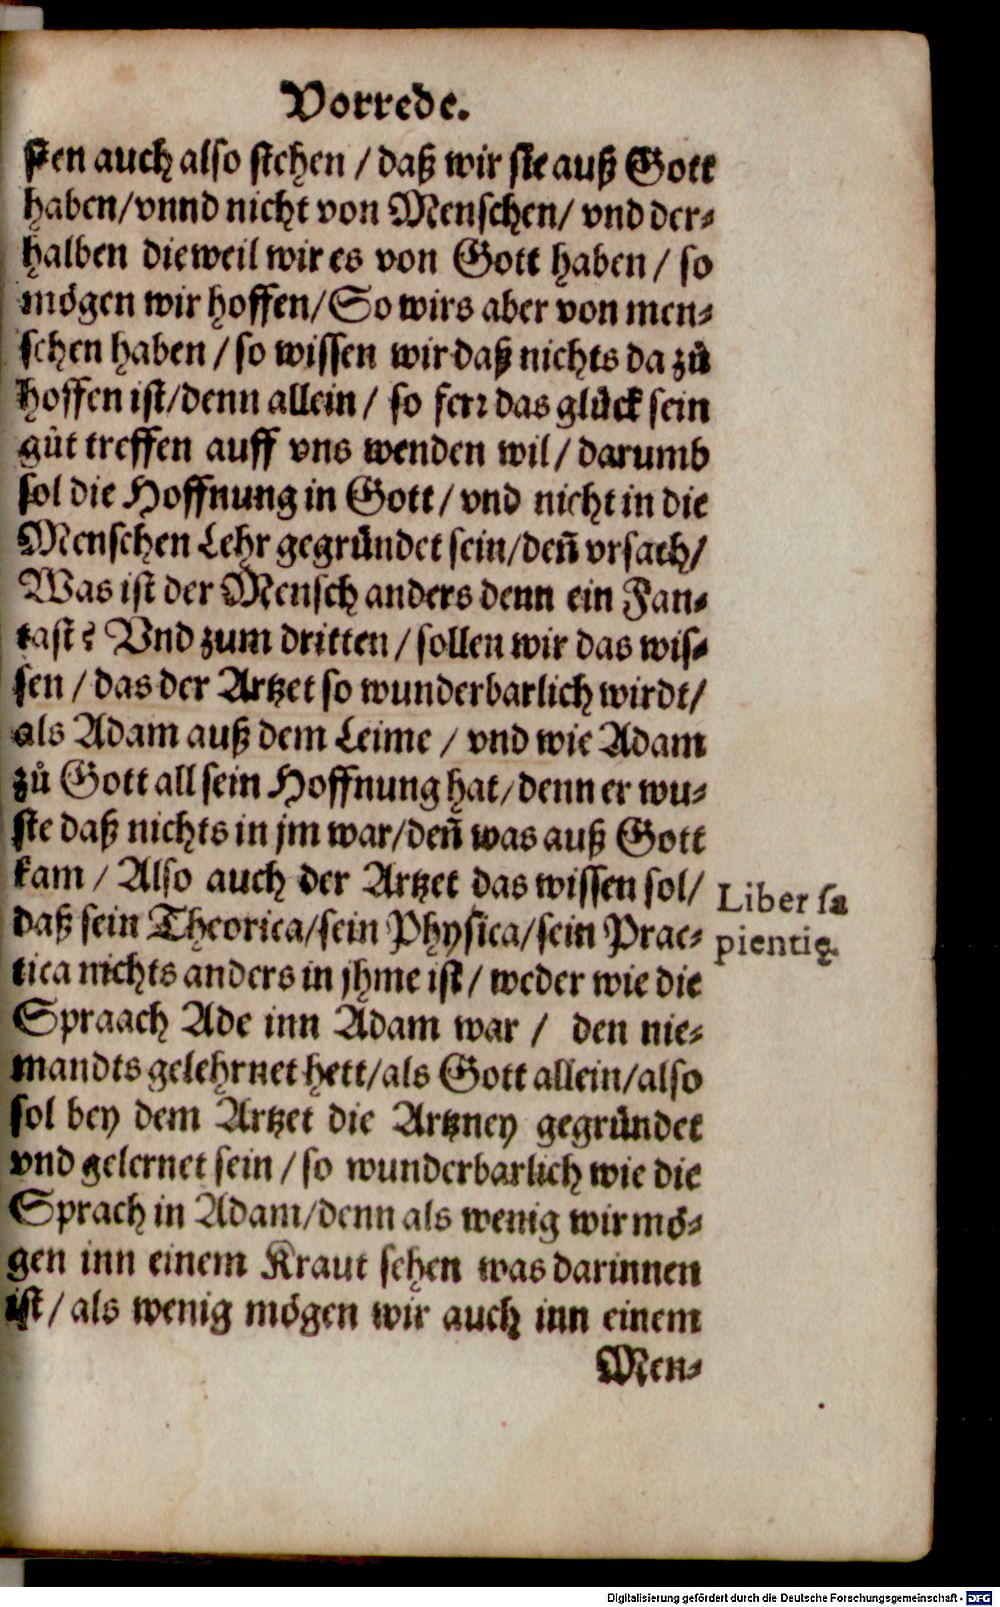 Vorrede.
sten auch also stehen / daß wir sie auß Gott
haben/vnnd nicht von Menschen/ vnd der⸗
halben dieweil wir es von Gott haben / so
mögen wir hoffen/So wirs aber von men⸗
schen haben / so wissen wir daß nichts da zů
hoffen ist/denn allein / so ferꝛ das glück sein
gůt treffen auff vns wenden wil / darumb
sol die Hoffnung in Gott / vnd nicht in die
Menschen Lehr gegründet sein/deñ vrsach/
Was ist der Mensch anders denn ein Fan⸗
tast? Vnd zum dritten / sollen wir das wis⸗
sen / das der Artzet so wunderbarlich wirdt/
als Adam auß dem Leime / vnd wie Adam
zů Gott all sein Hoffnung hat/denn er wu⸗
ste daß nichts in jm war/deñ was auß Gott
kam / Also auch der Artzet das wissen sol/
daß sein Theorica/sein Physica/sein Prac⸗
tica nichts anders in jhme ist / weder wie die
Spraach Ade inn Adam war / den nie⸗
mandts gelehrnet hett/als Gott allein/also
sol bey dem Artzet die Artzney gegründet
vnd gelernet sein / so wunderbarlich wie die
Sprach in Adam/denn als wenig wir mö⸗
gen inn einem Kraut sehen was darinnen
ist / als wenig mögen wir auch inn einem
Men⸗
Liber sa
pientię.
Digitalisierung gefördert durch die Deutsche Forschungsgemeinschaft - DFG